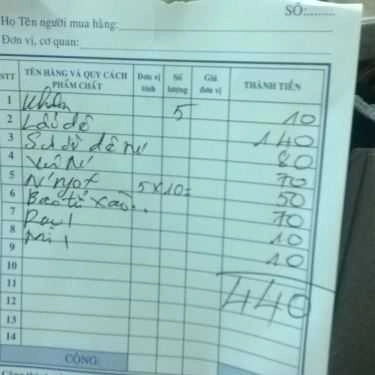 SỐ:..........
Họ Tên người mua hàng:
Đơn vị, cơ quan:
STT TÊN HÀNG VÀ QUY CÁCH PHẨM CHẤT Đơn vị tính Số lượng Giá đơn vị THÀNH TIỀN
1 Khăn 5 10
2 Lẩu dê 140
3 dê 80
4 70
5 N ngọt 5 x 10 = 50
6 Bao tử xào.. 70
7 Rau 1 10
8 Mì 1 10
9
10
11 440
12
13
14
CỘNG: